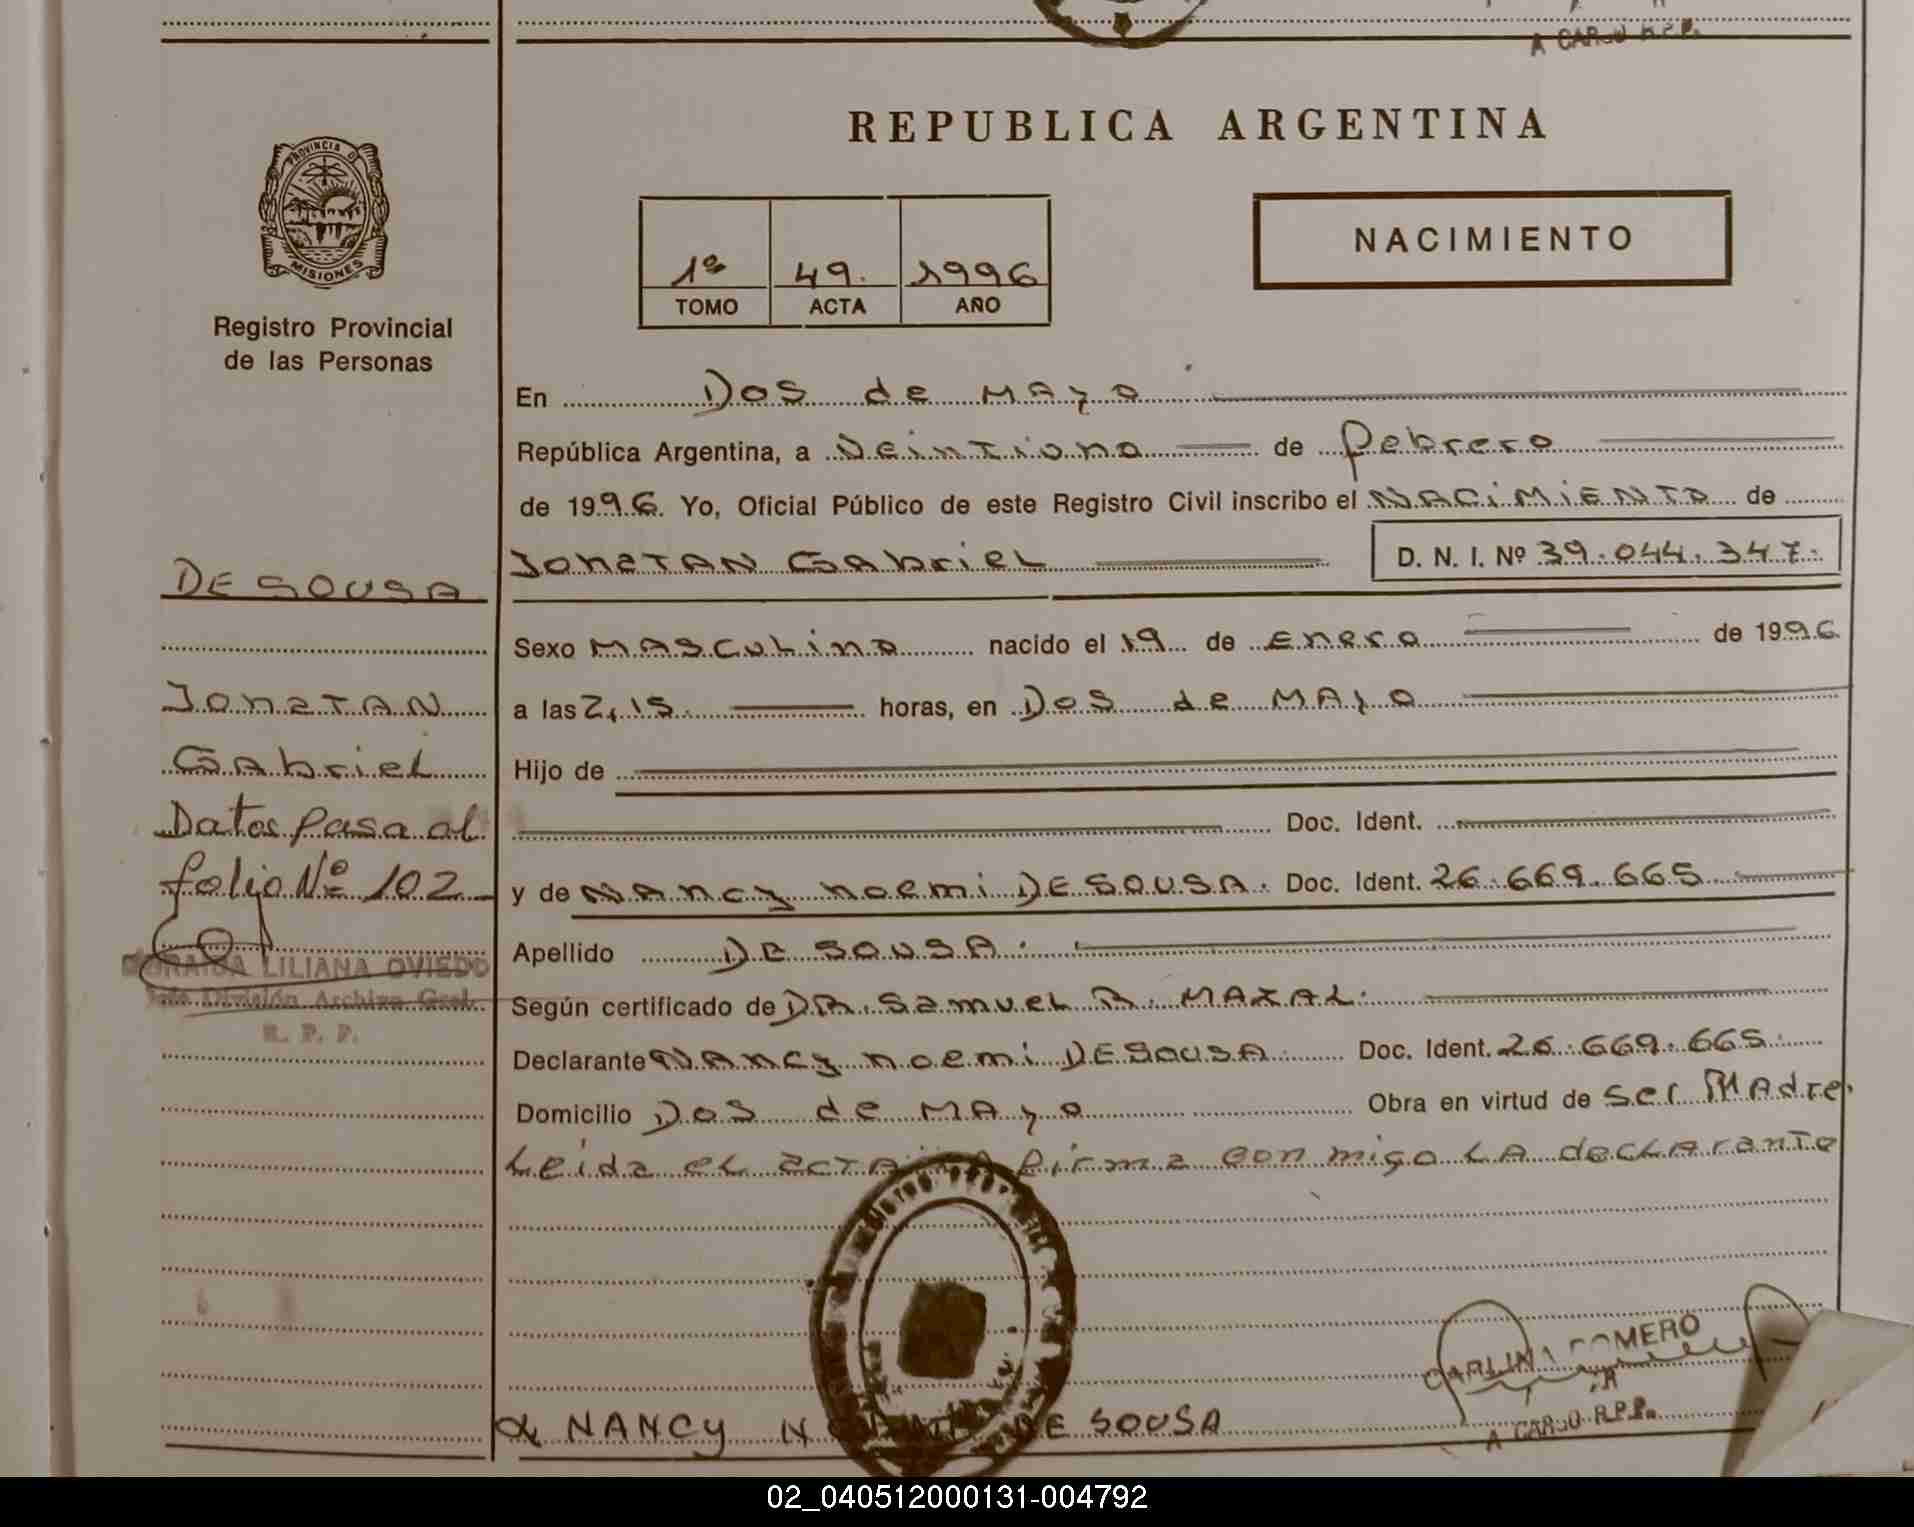 A CARGO R.P.P.
REPUBLICA ARGENTINA
PROVINCIA DE
MISIONES
Registro Provincial
de las Personas
1º 49. 1996
TOMO ACTA AÑO
NACIMIENTO
En Dos de MAyo
República Argentina, a Veintiuno de Febrero
de 1996. Yo, Oficial Público de este Registro Civil inscribo el NACiMiENTO de
DE SOUSA
JonaTAN GabrieL
D. N. I. Nº 39.044.347.
Sexo MASCuLino nacido el 19 de Enero de 1996
JonaTAN
a las 2,15. horas, en Dos de MAyo
GabrieL
Hijo de
Datos pasa al
Doc. Ident.
folio Nº 102
y de NANcy noemi DE SOUSA. Doc. Ident. 26.669.665
Apellido DE SOUSA.
LILIANA OVIEDO
Según certificado de DR. SamueL R. MAZAL.
Jefe División Archivo Gral.
R. P. P.
Declarante NANcy noemi DE SOUSA. Doc. Ident. 26.669.665.
Domicilio Dos de MAyo Obra en virtud de Ser MAdre.
Leida eL acTA firma conmigo LA decLArante
NANCY DE SOUSA
ROMERO
A CARGO R.P.P.
02_040512000131-004792